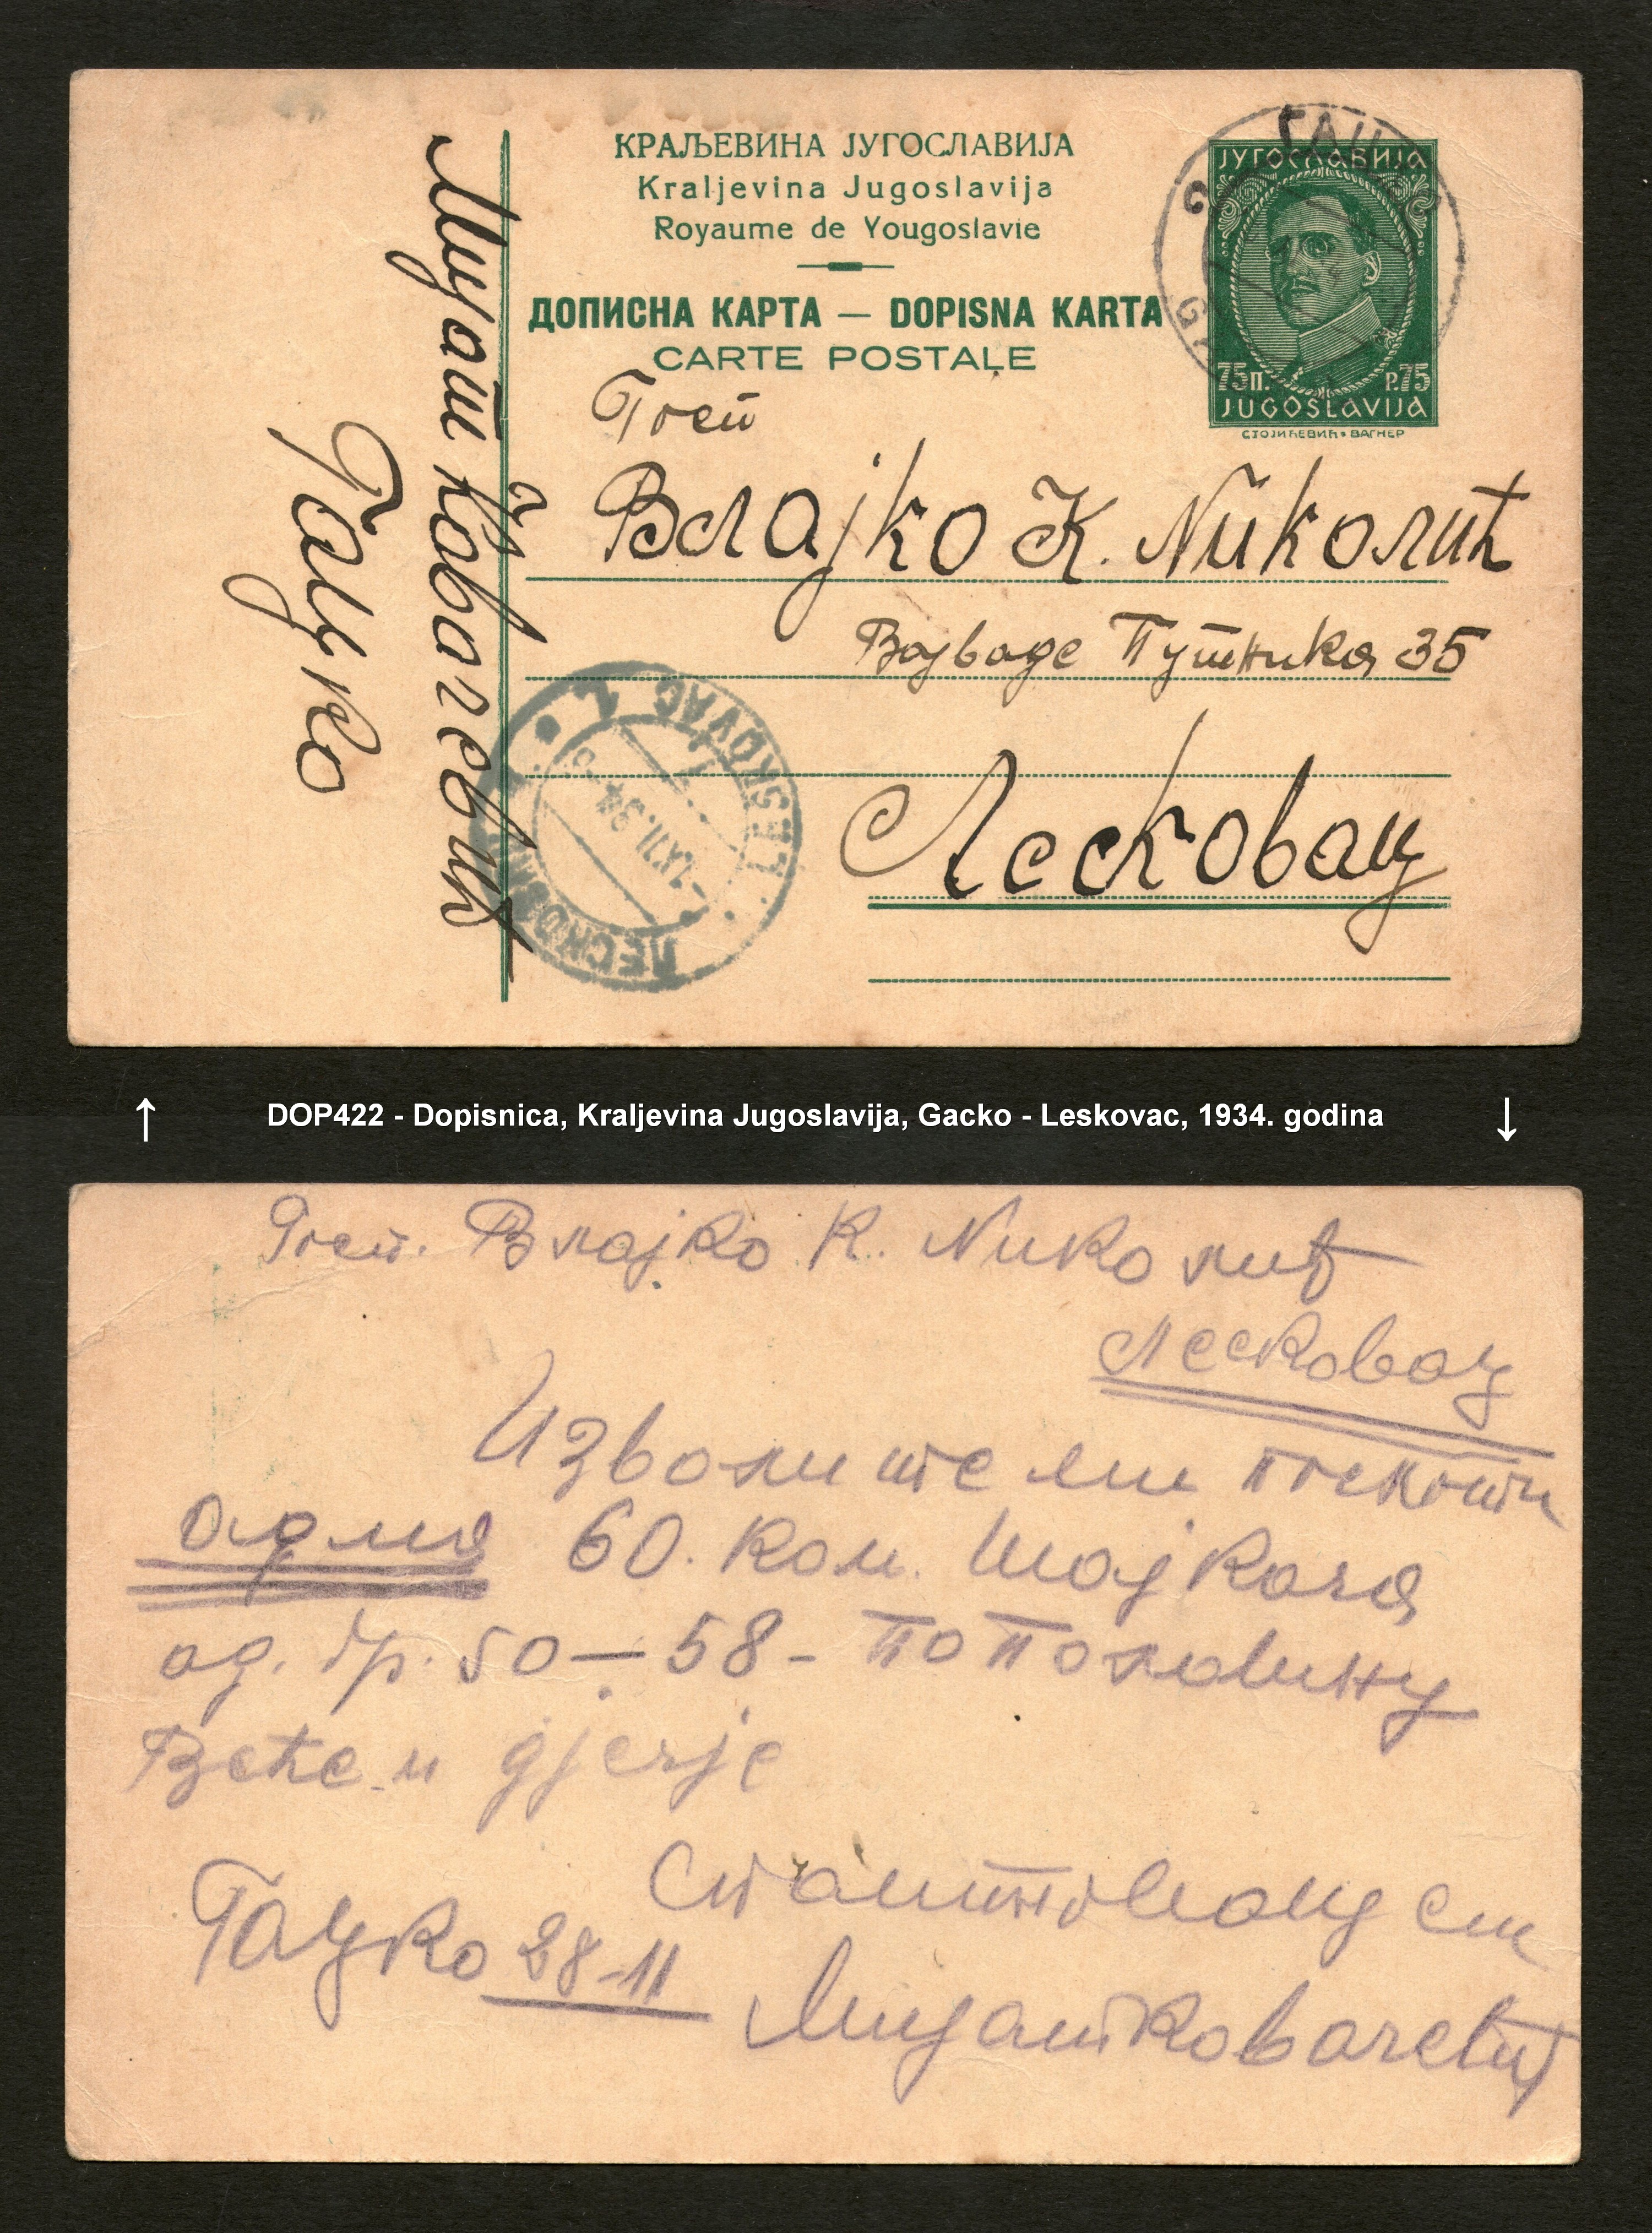 КРАЉЕВИНА ЈУГОСЛАВИЈА
Kraljevina Jugoslavija
Royaume de Yougoslavie
ДОПИСНА КАРТА — DOPISNA KARTA
CARTE POSTALE
ЈУГОСЛАВИЈА
75П. P.75
JUGOSLAVIJA
СТОЈИЋЕВИЋ • ВАГНЕР
ГАЦКО
Госп
Влајко К. Николић
Војводе Путника 35
Лесковац
Мијат Ковачевић
Гацко
ЛЕСКОВАЦ
-1.XII.34
LESKOVAC
↑ DOP422 - Dopisnica, Kraljevina Jugoslavija, Gacko - Leskovac, 1934. godina ↓
Госп. Влајко К. Николић
Лесковац
Изволите ми послати
одма 60. ком. Шајкача
од. бр. 50 – 58 – по половину
Веће и дјечје
Гацко 28-11
Мијат Ковачевић